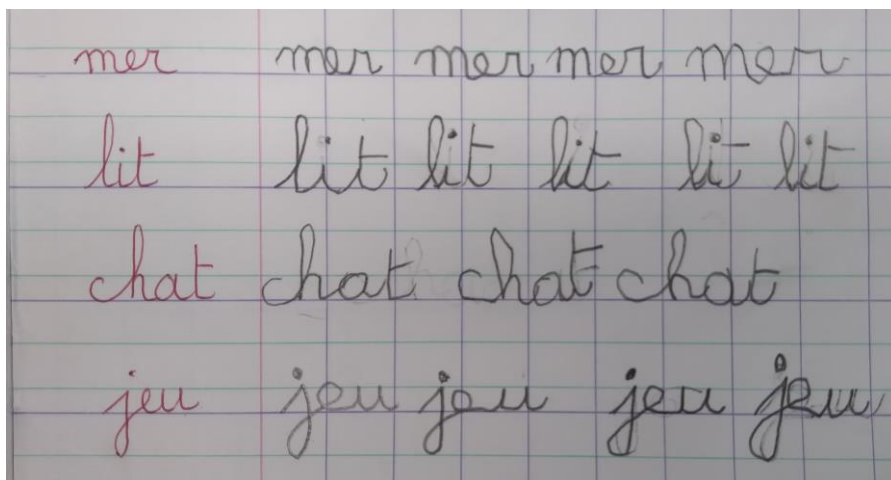 mer mer mer mer mer
lit lit lit lit lit lit
chat chat chat chat
jeu jeu jeu jeu jeu